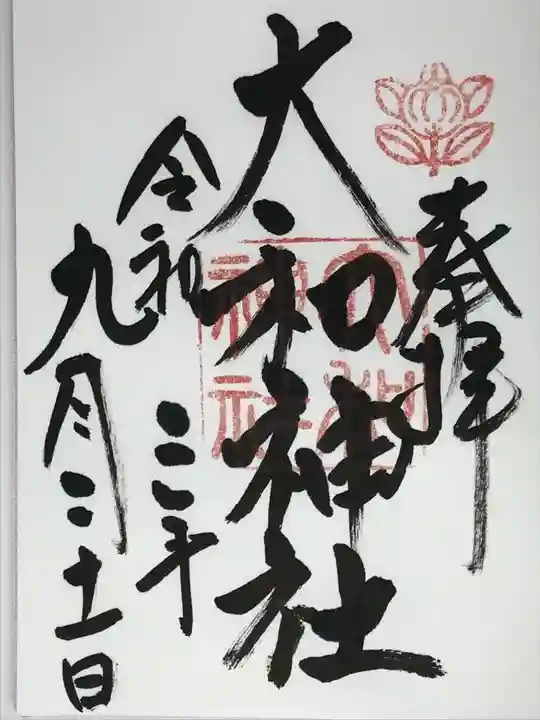 奉拝
大和神社
大和神社
令和三年
九月二十一日